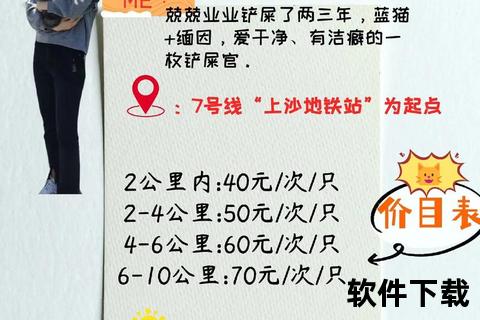 ME!
兢兢业业铲屎了两三年，蓝猫
+缅因，爱干净、有洁癖的一
枚铲屎官．
：7号线“上沙地铁站”为起点
2公里内:40元/次/只
2-4公里:50元/次/只
价目表
4-6公里:60元/次/只
6-10公里:70元/次/只
软件下载